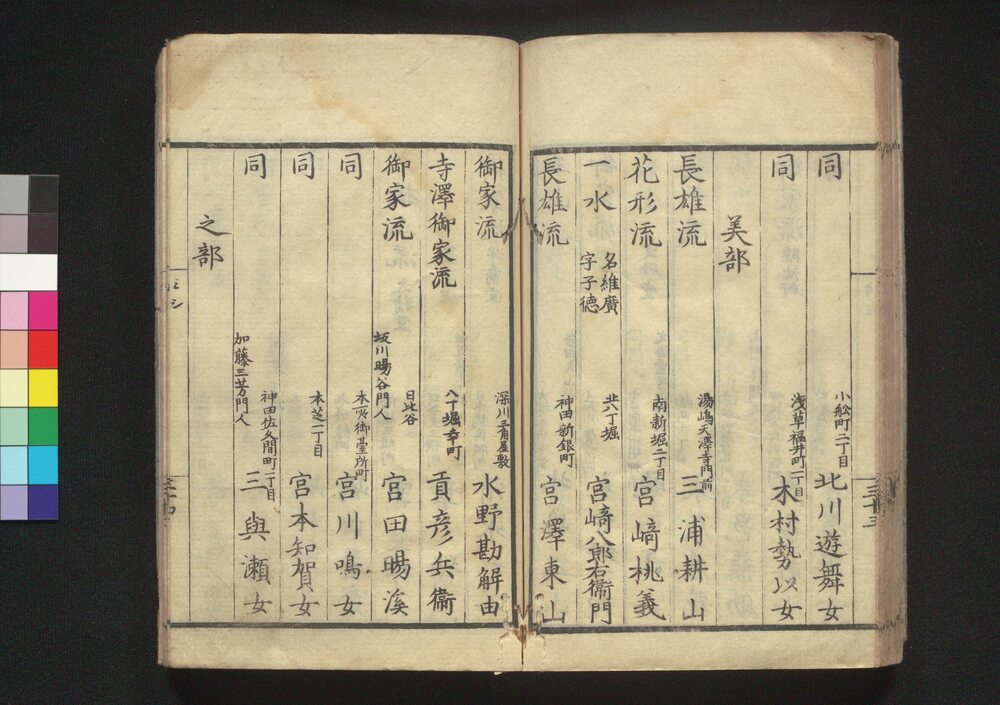 同 小舩町二丁目 北川遊舞女
同 浅草福井町一丁目 木村勢以女
美部
長雄流 湯嶋天澤寺門前 三浦耕山
花形流 南新堀二丁目 宮﨑桃義
一水 名維廣 字子德 北八丁堀 宮﨑八郎右衛門
長雄流 神田新銀町 宮澤東山
御家流 深川三角屋敷 水野勘解由
寺澤御家流 八丁堀幸町 貢彦兵衞
御家流 坂川暘谷門人 日比谷 宮田暘溪
同 本所御臺所町 宮川鳴女
同 本芝一丁目 宮本知賀女
同 加藤三芳門人 神田佐久間町一丁目 三與瀬女
之部